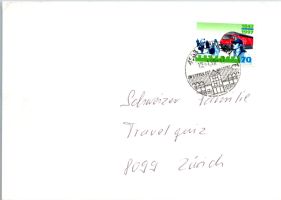 1847
1997
70
Schweizer Familie
Travelquiz
8099 Zürich